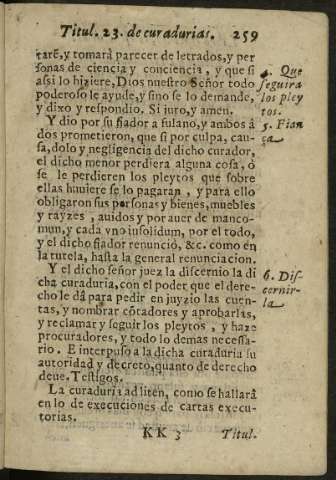 Titul. 23. de curadurias. 259
tare, y tomarà parecer de letrados, y per
sonas de ciencia y conciencia, y que si
assi lo hiziere, Dios nuestro Señor todo
poderoso le ayude, y sino se lo demande,
y dixo y respondio. Si juro, y amen.
4. Que
seguira
los pley
tos.
Y dio por su fiador a fulano, y ambos à
dos prometieron, que si por culpa, cau-
sa, dolo y negligencia del dicho curador,
el dicho menor perdiera alguna cosa, ò
se le perdieren los pleytos que sobre
ellas huuiere se lo pagaran, y para ello
obligaron sus personas y bienes, muebles
y rayzes, auidos y por auer de manco-
mun, y cada vno insolidum, por el todo,
y el dicho fiador renunciò, &c. como en
la tutela, hasta la general renunciacion.
5. Fian
ça
Y el dicho señor juez la discernio la di
cha curaduria, con el poder que el dere-
cho le dà para pedir en juyzio las cuen-
tas, y nombrar cõtadores y aprobarlas,
y reclamar y seguir los pleytos, y haze
procuradores, y todo lo demas necessa-
rio. E interpuso a la dicha curaduria su
autoridad y decreto, quanto de derecho
deue. Testigos.
6. Dis-
cernir-
la
La curaduria ad litèn, como se hallarà
en lo de execuciones de cartas execu-
torias.
KK 3 Titul.